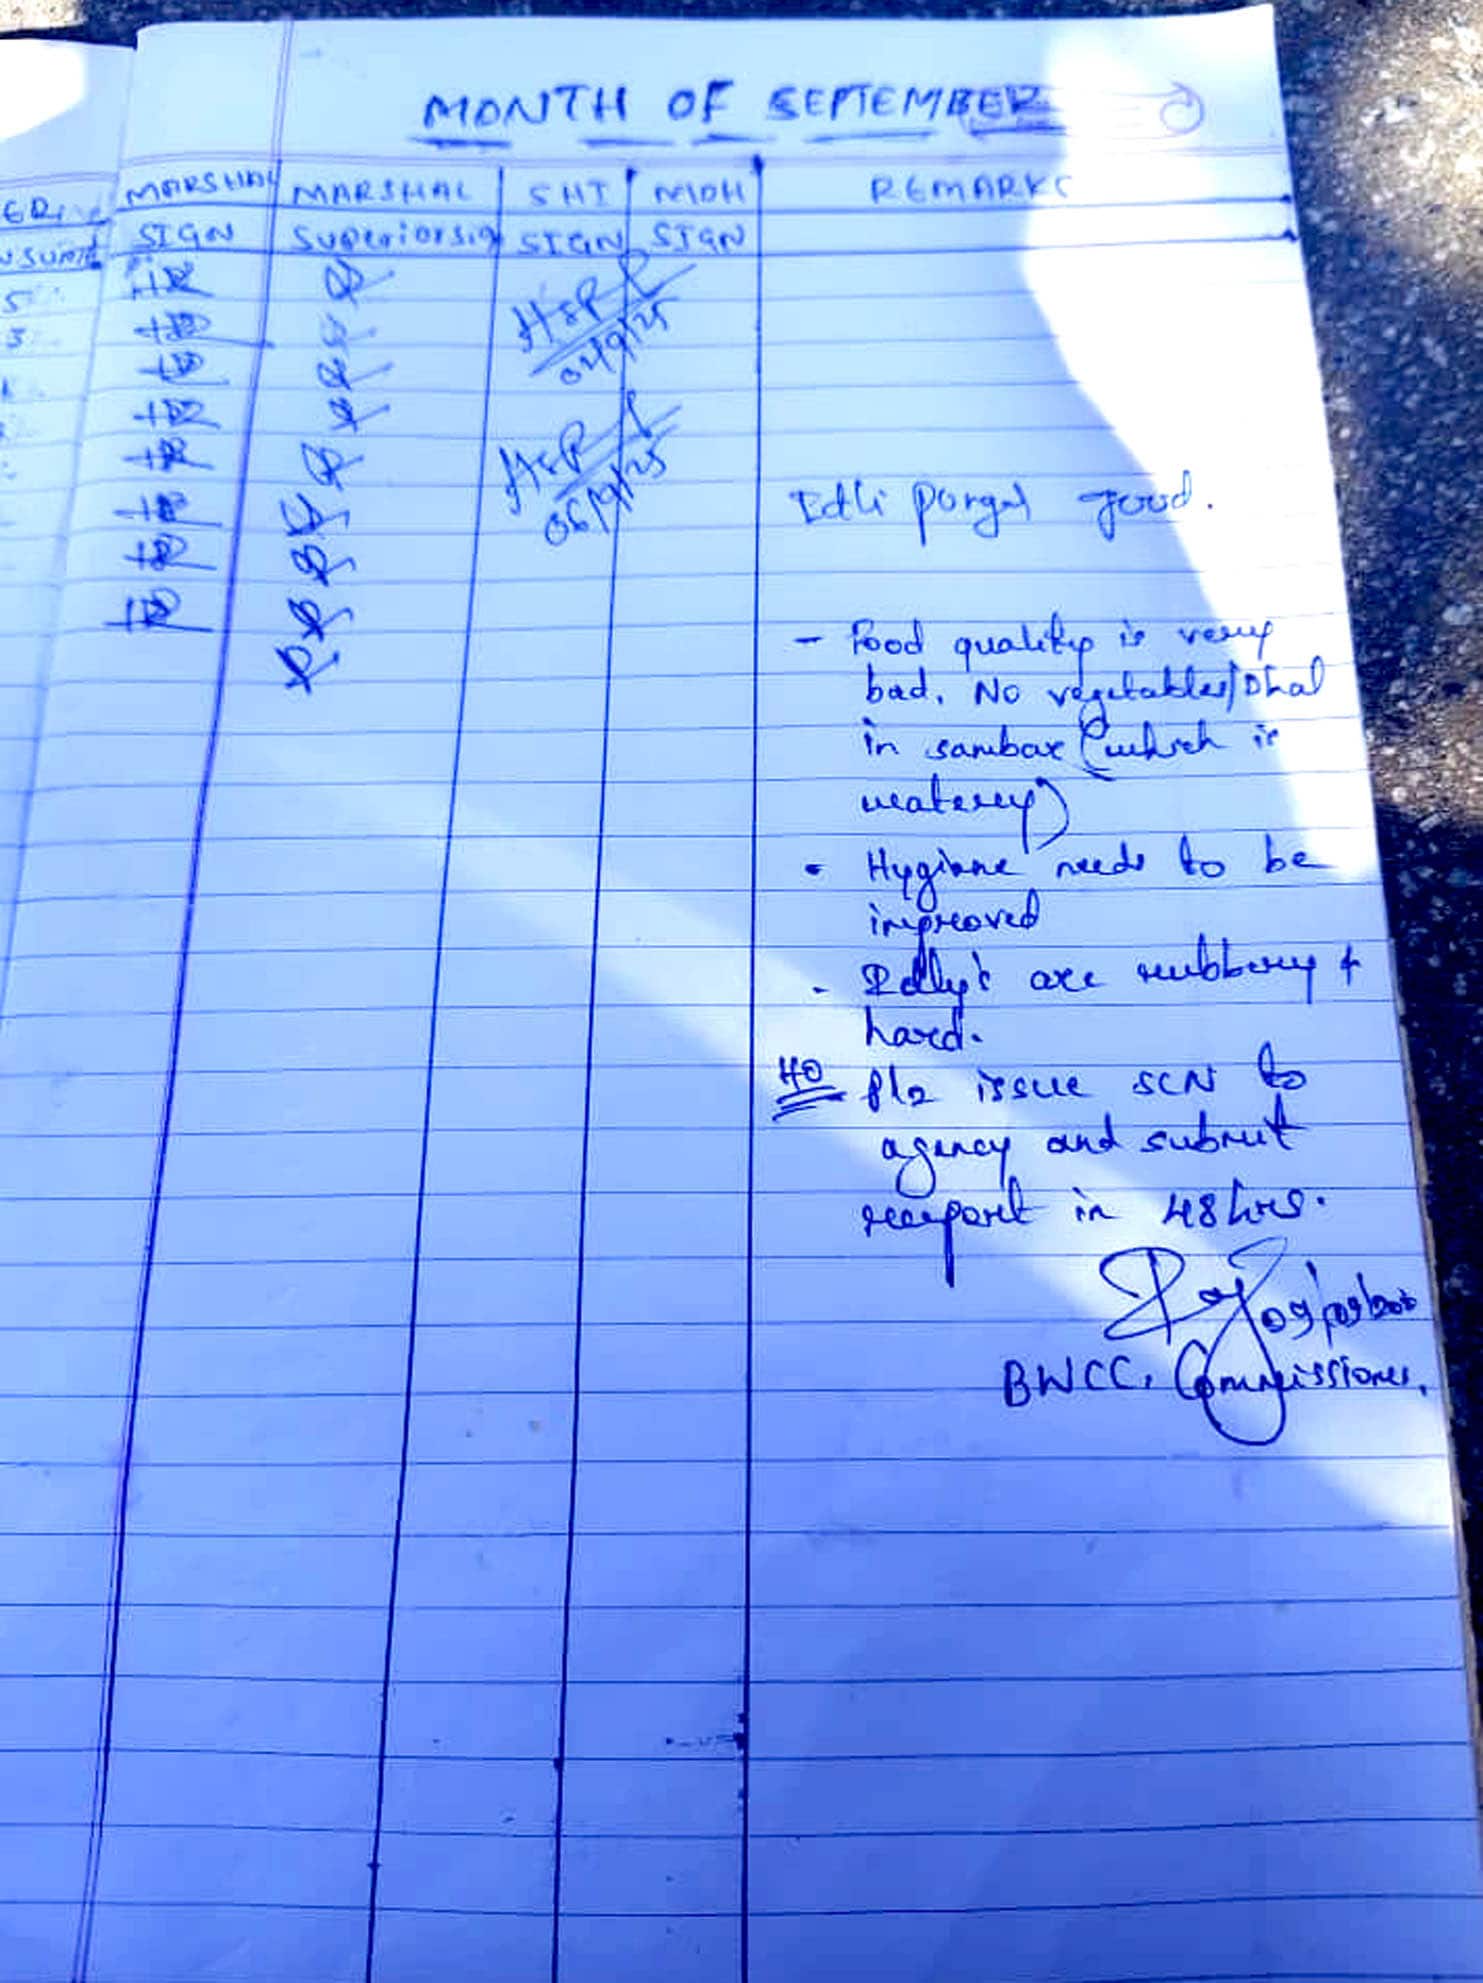 MONTH OF SEPTEMBER
MARSHAL MARSHAL SHI MOH REMARKS
SIGN Superiorsig SIGN SIGN
02/9/25
06/9/25
Idli pongal good.
- Food quality is very
bad. No vegetables/Dhal
in sambar (which is
watery)
• Hygiene needs to be
improved
- Idly's are rubbery &
hard.
HO Plz issue SCN to
agency and submit
report in 48 hrs.
BWCC, Commissioner,